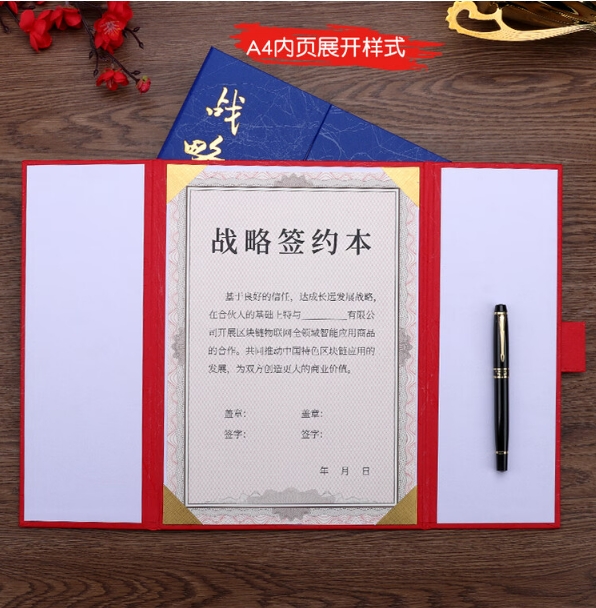 A4内页展开样式
战略
战略签约本
基于良好的信任，达成长远发展战略，
在合伙人的基础上特与________有限公
司开展区块链物联网全领域智能应用商品
的合作。共同推动中国特色区块链应用的
发展，为双方创造更大的商业价值。
盖章： 盖章：
签字： 签字：
年 月 日